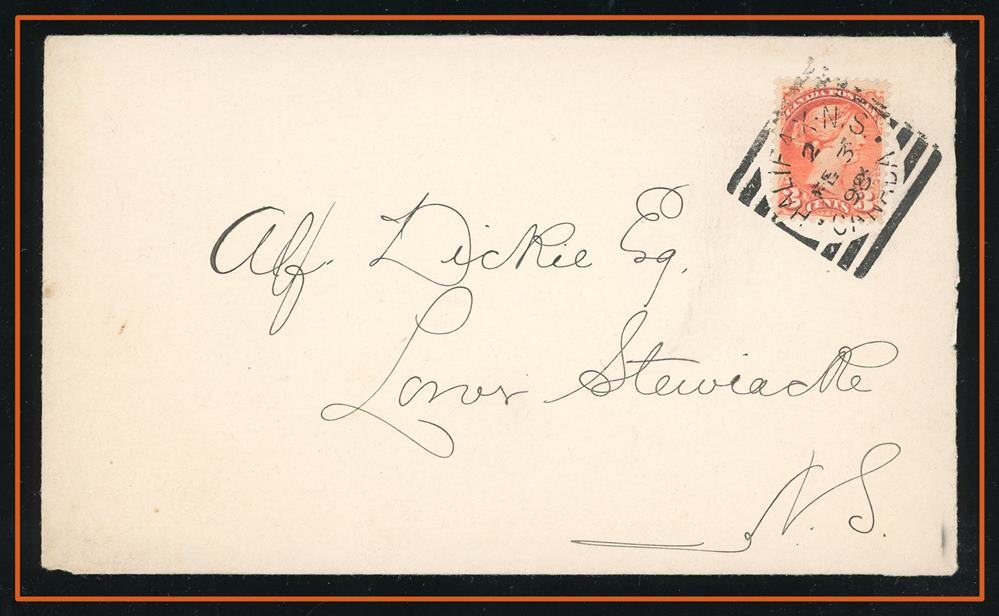 CANADA POSTAGE
HALIFAX. N.S.
2
FE 3
98
CANADA
3 CENTS 3
Alf. Dickie Esq.
Lower Stewiacke
N.S.